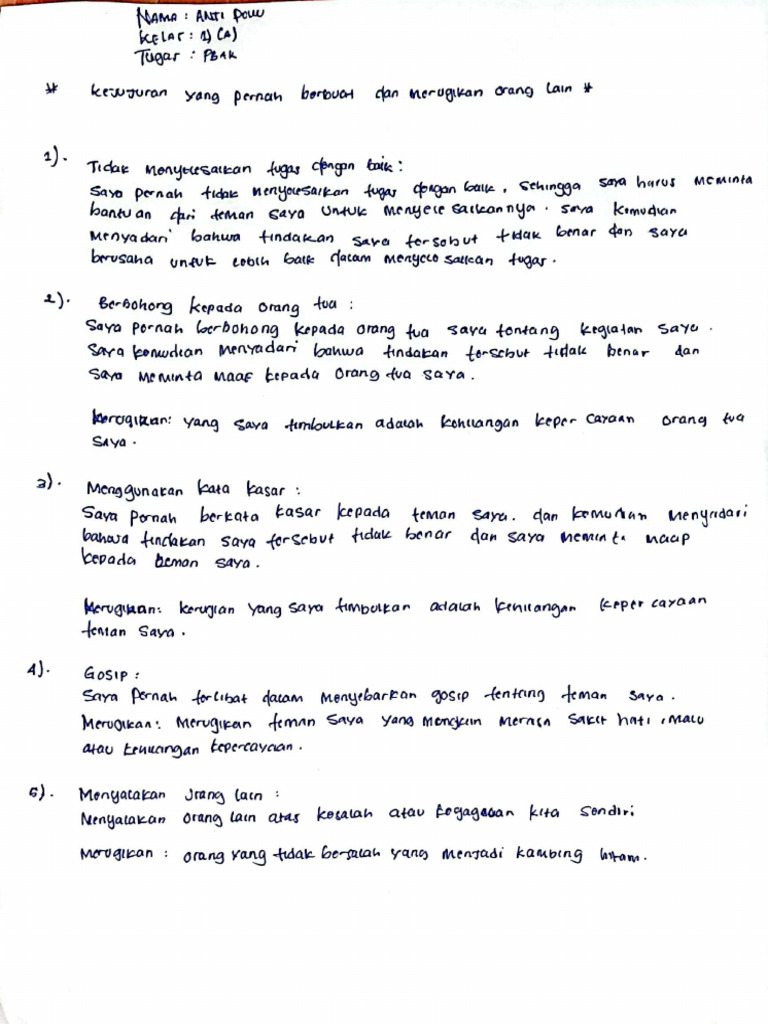 NAMA : ANTI POLU
KELAS : 1) (A)
Tugas : PBAK
* Kejujuran yang pernah berbuat dan merugikan orang lain *
1). Tidak menyelesaikan tugas dengan baik :
Saya pernah tidak menyelesaikan tugas dengan baik, sehingga saya harus meminta
bantuan dari teman saya untuk menyelesaikannya. saya kemudian
menyadari bahwa tindakan saya tersebut tidak benar dan saya
berusaha untuk lebih baik dalam menyelesaikan tugas.
2). Berbohong kepada orang tua :
Saya pernah berbohong kepada orang tua saya tentang kegiatan saya.
Saya kemudian menyadari bahwa tindakan tersebut tidak benar dan
saya meminta maaf kepada orang tua saya.
Merugikan: yang saya timbulkan adalah kehilangan kepercayaan orang tua
saya.
3). Menggunakan kata kasar :
Saya pernah berkata kasar kepada teman saya. dan kemudian menyadari
bahwa tindakan saya tersebut tidak benar dan saya meminta maap
kepada teman saya.
Merugikan: kerugian yang saya timbulkan adalah kehilangan kepercayaan
teman saya.
4). GOSIP :
Saya pernah terlibat dalam menyebarkan gosip tentang teman saya.
Merugikan: Merugikan teman saya yang mungkin merasa sakit hati, malu
atau kehilangan kepercayaan.
5). Menyalakan orang lain :
Menyalakan orang lain atas kesalah atau kegagalan kita sendiri
Merugikan : orang yang tidak bersalah yang menjadi kambing hitam.